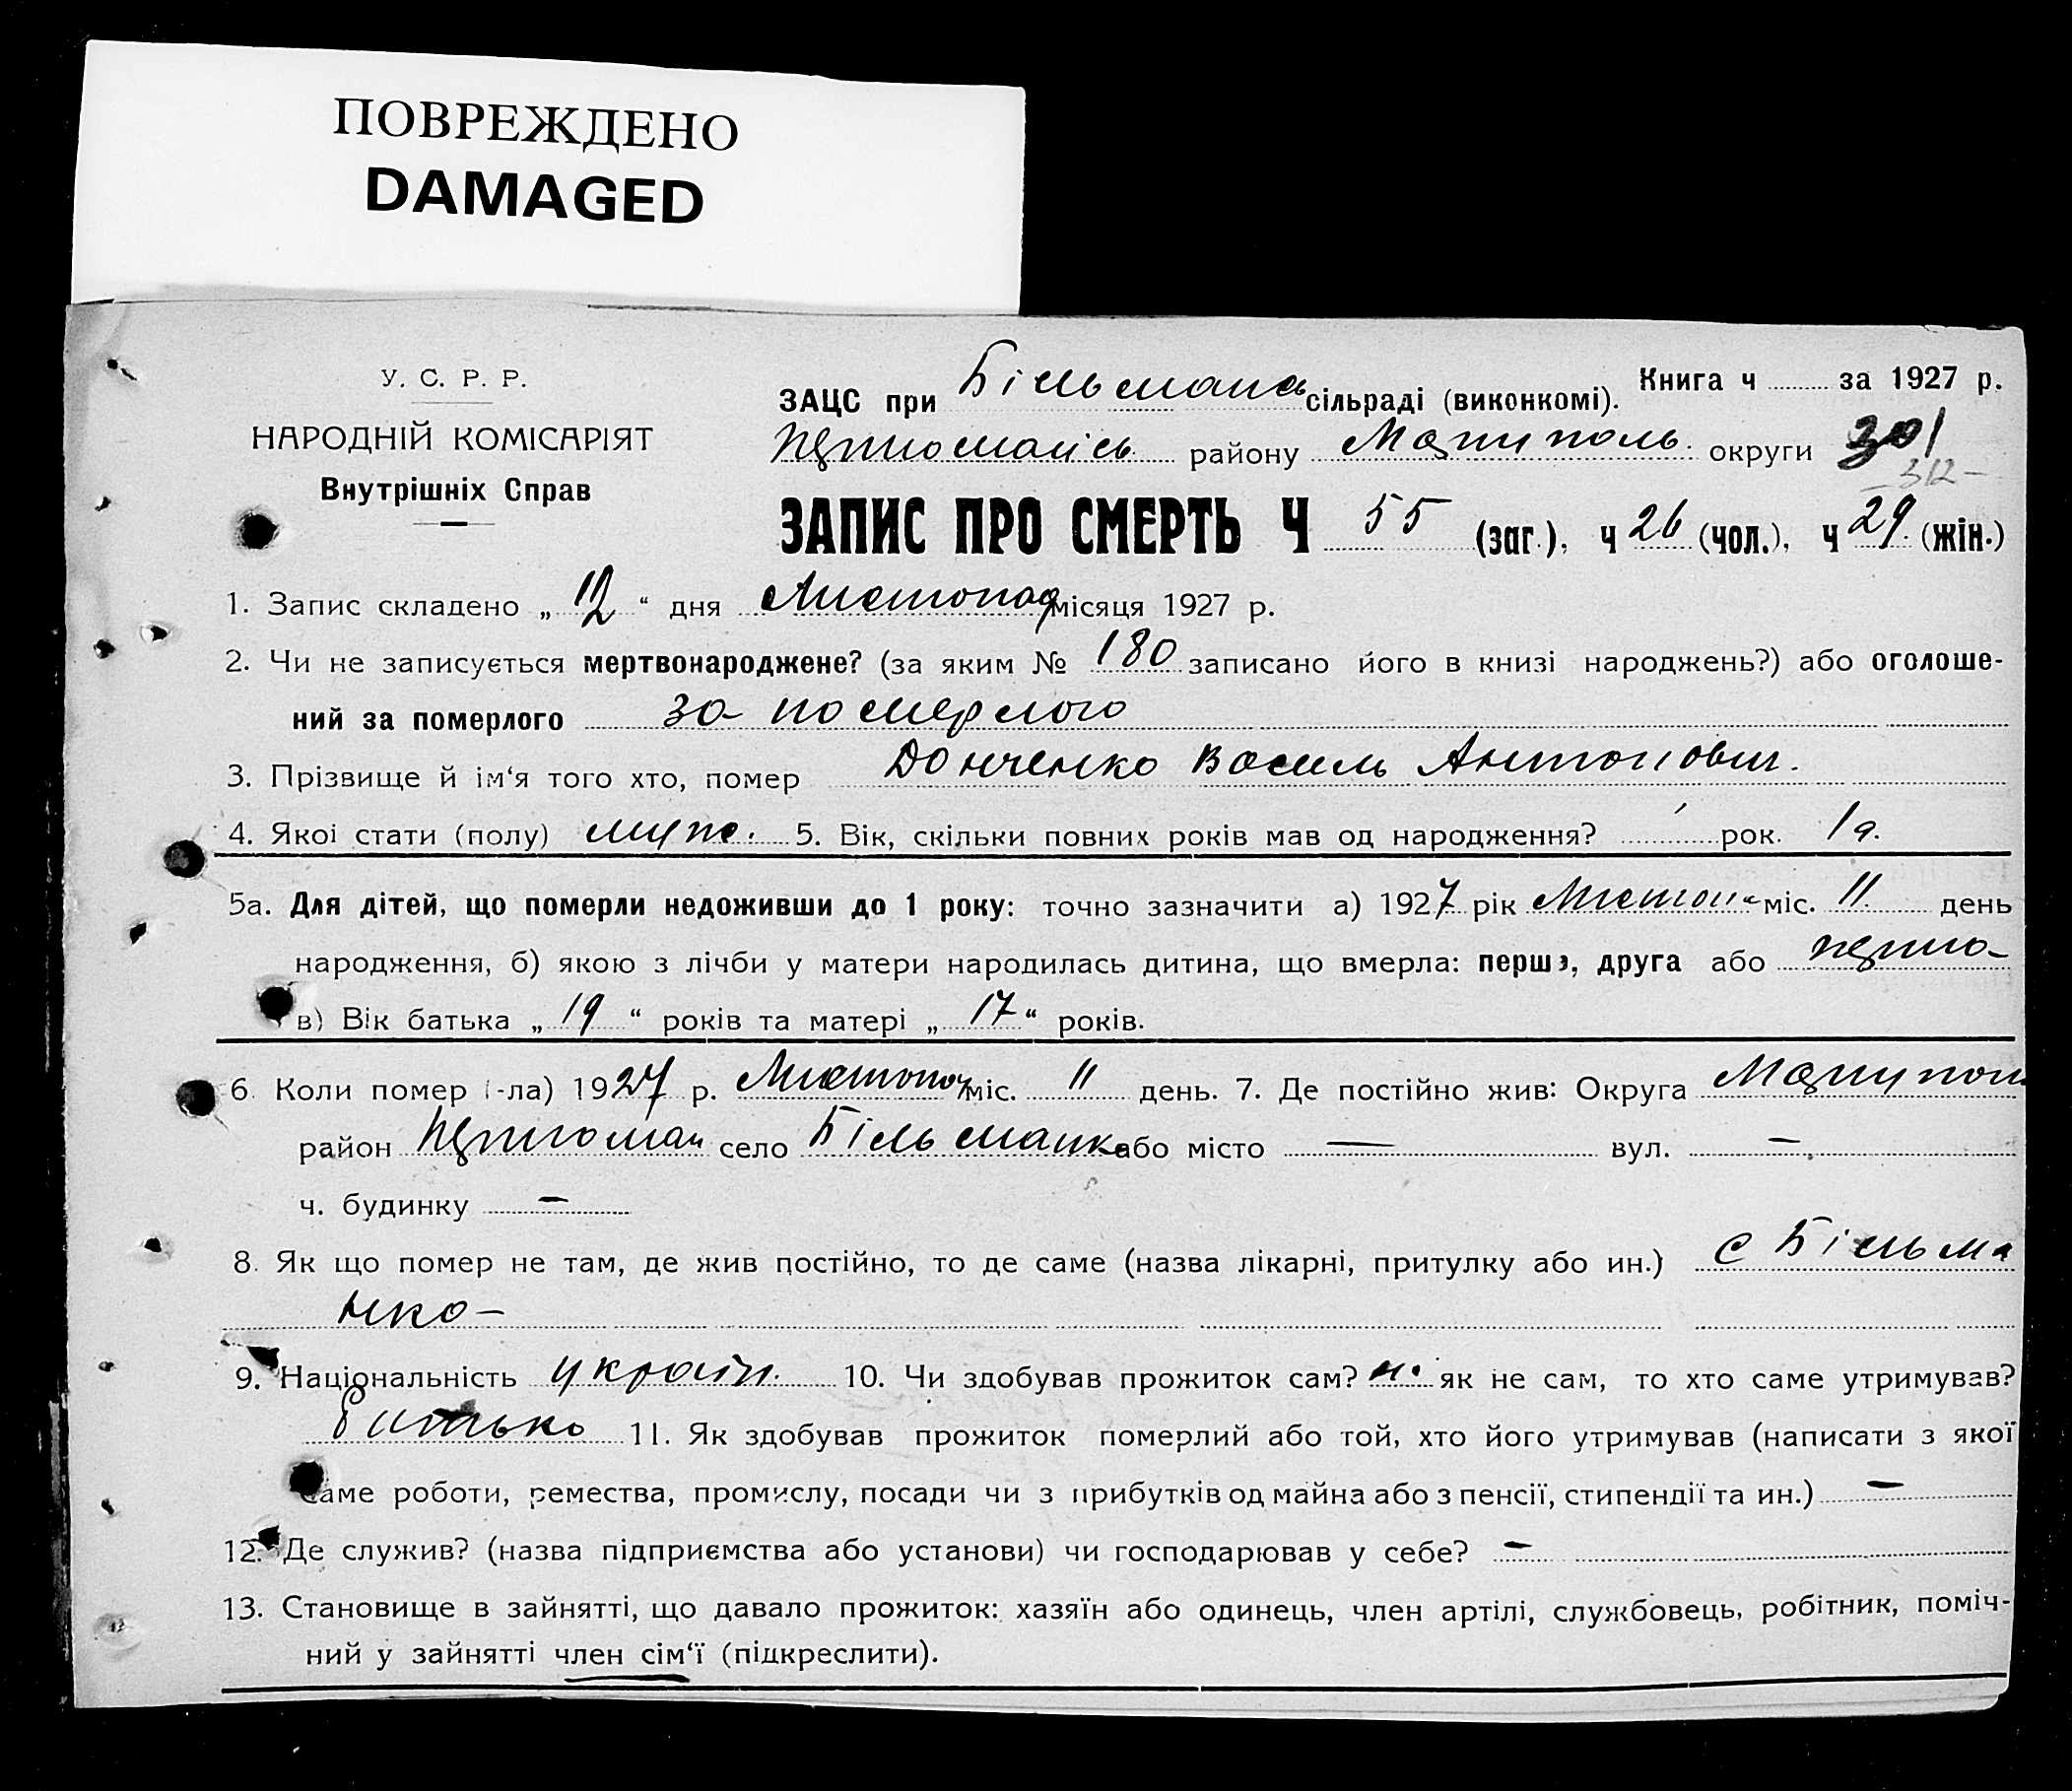 ПОВРЕЖДЕНО
DAMAGED
У. С. Р. Р.
НАРОДНІЙ КОМІСАРІЯТ
Внутрішніх Справ
Книга ч за 1927 р.
ЗАЦС при Більмансь сільраді (виконкомі).
Першомайсь. району Маріуполь. округи 301
312
ЗАПИС ПРО СМЕРТЬ Ч 55 (заг.), ч 26 (чол.), ч 29. (жін.)
1. Запис складено „ 12 “ дня Листопад місяця 1927 р.
2. Чи не записується мертвонароджене? (за яким № 180 записано його в книзі народжень?) або оголоше-
ний за померлого за померлого
3. Прізвище й ім‘я того хто, помер Донченко Василь Антонович.
4. Якої стати (полу) муж. 5. Вік, скільки повних років мав од народження? рок. 1 д.
5а. Для дітей, що померли недоживши до 1 року: точно зазначити а) 1927 рік Листоп міс. 11. день
народження, б) якою з лічби у матери народилась дитина, що вмерла: перша, друга або перша
в) Вік батька „ 19 “ років та матері „ 17 “ років.
6. Коли помер (-ла) 1927 р. Листопад міс. 11 день. 7. Де постійно жив: Округа Маріупол
район Першомай село Більманка або місто — вул. —
ч. будинку —
8. Як що помер не там, де жив постійно, то де саме (назва лікарні, притулку або ин.) с Більма
нка
9. Національність україн. 10. Чи здобував прожиток сам? н. як не сам, то хто саме утримував?
Батько 11. Як здобував прожиток померлий або той, хто його утримував (написати з якої
саме роботи, ремества, промислу, посади чи з прибутків од майна або з пенсії, стипендії та ин.) —
12. Де служив? (назва підприємства або установи) чи господарював у себе? —
13. Становище в зайнятті, що давало прожиток: хазяїн або одинець, член артілі, службовець, робітник, поміч-
ний у зайнятті член сім‘ї (підкреслити).